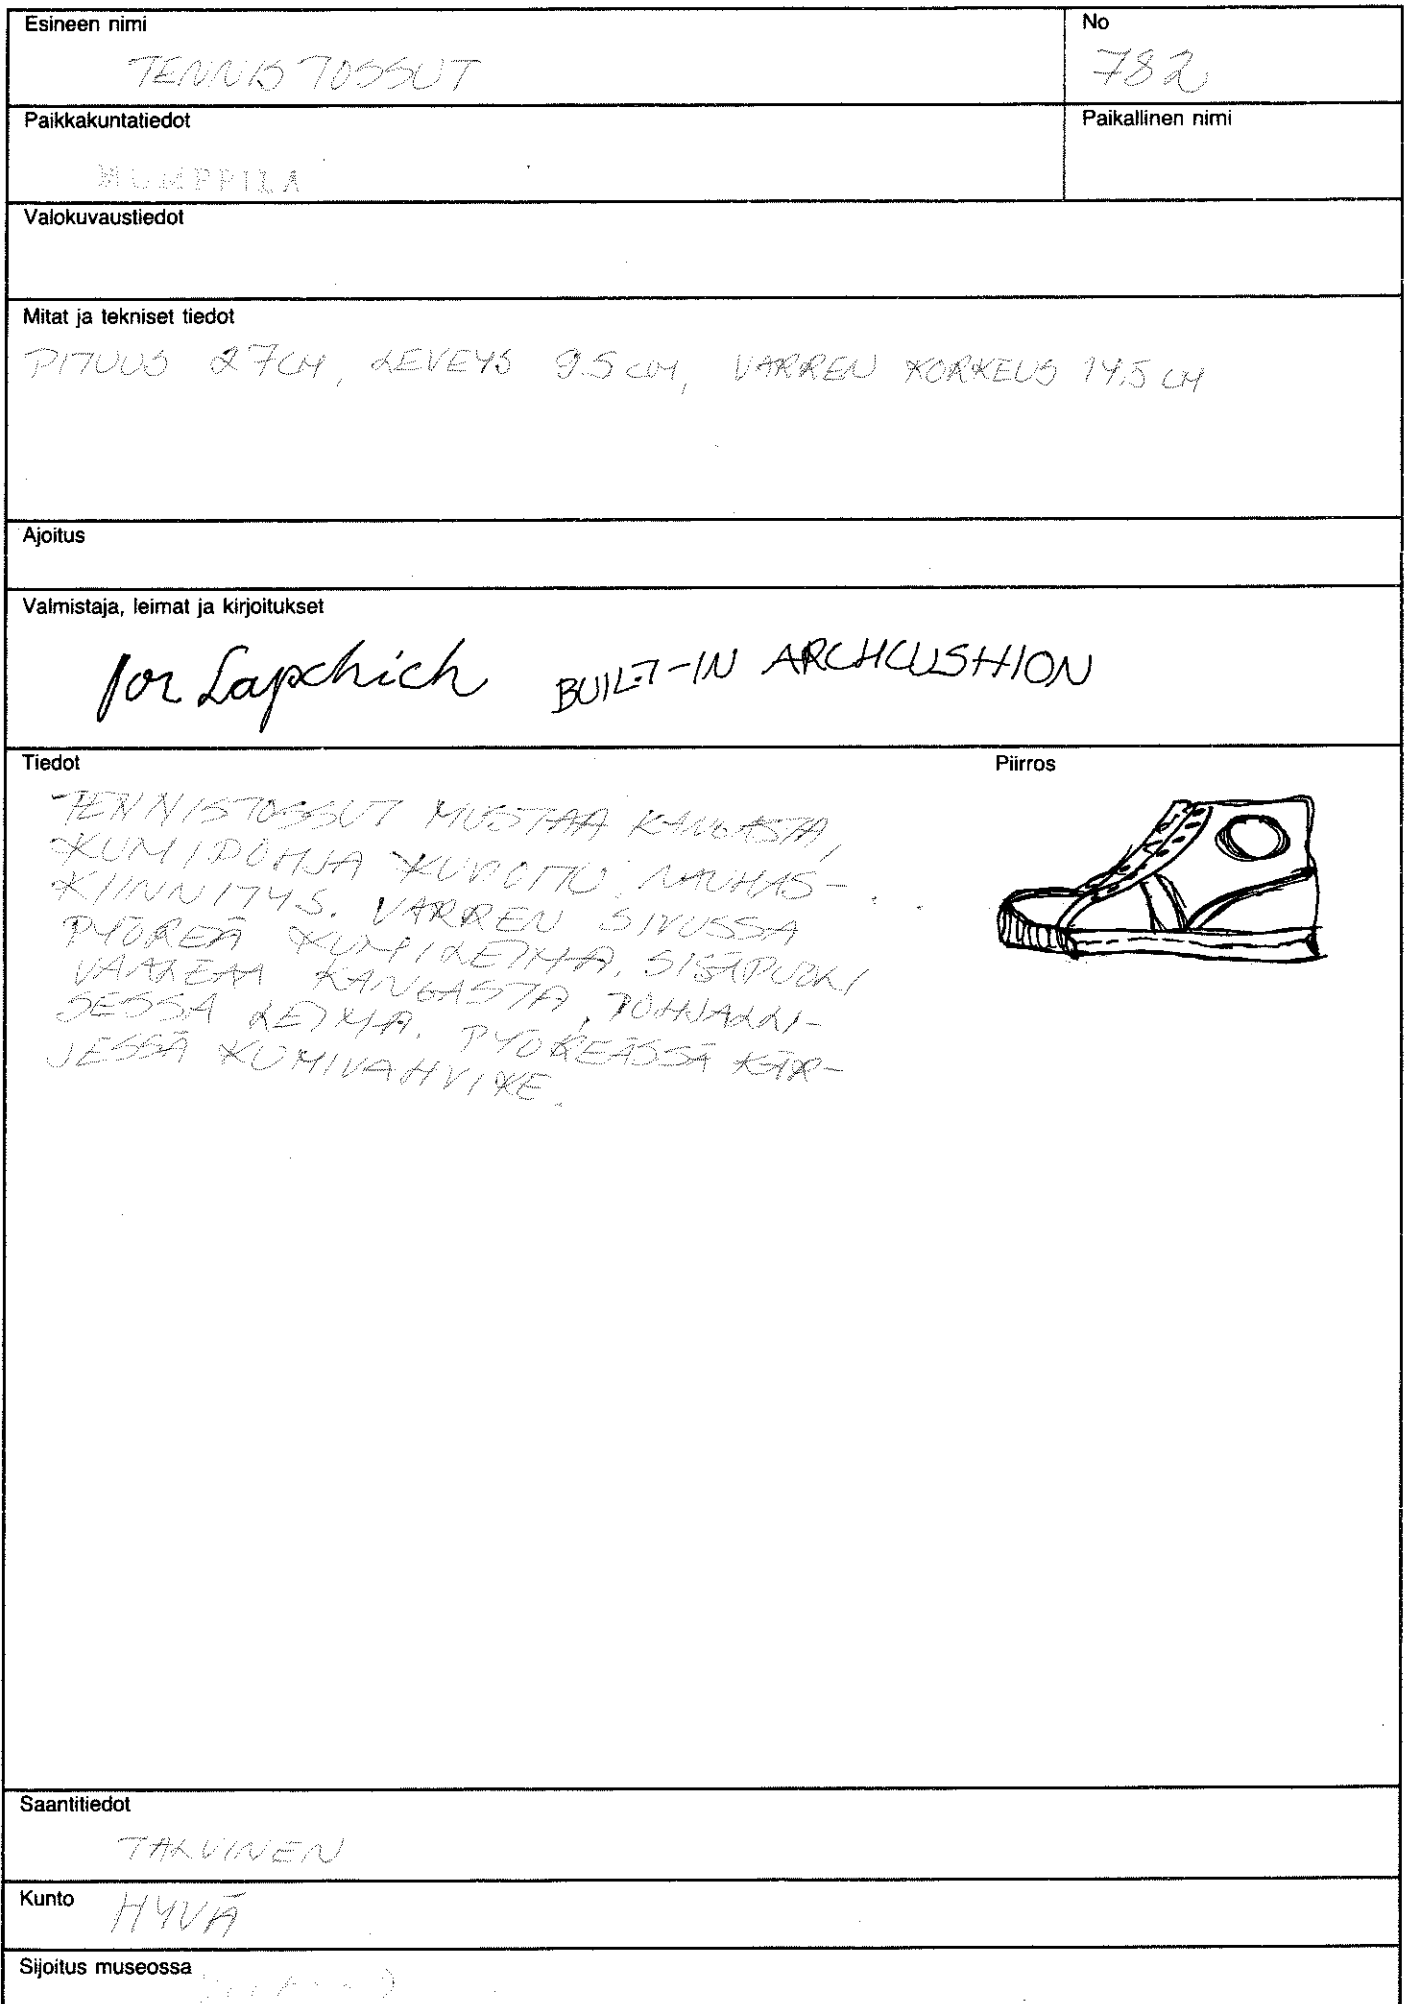 Esineen nimi
TENNISTOSSUT
No
782
Paikkakuntatiedot
HUMPPILA
Paikallinen nimi
Valokuvaustiedot
Mitat ja tekniset tiedot
PITUUS 27CM, LEVEYS 9.5 CM, VARREN KORKEUS 14,5 CM
Ajoitus
Valmistaja, leimat ja kirjoitukset
Lapchich BUILT-IN ARCHCUSHION
Tiedot
Piirros
TENNISTOSSUT MUSTAA KANGASTA,
KUMIPOHJA KUVIOITU. NAUHAS-
KIINNITYS. VARREN SIVUSSA
PYÖREÄ KUMILEIMA. SISÄPUOLI
VAALEAA KANGASTA, POHJALLI-
SESSA LEIMA. PYÖREÄSSÄ KÄR-
JESSÄ KUMIVAHVIKE.
Saantitiedot
TALVINEN
Kunto
HYVÄ
Sijoitus museossa